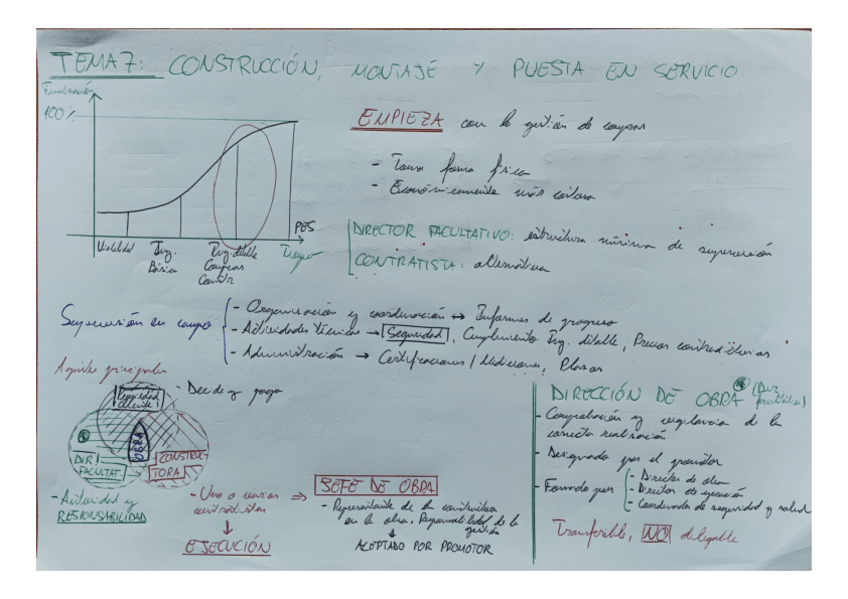 TEMA 7: CONSTRUCCIÓN, MONTAJE Y PUESTA EN SERVICIO
100%
EMPIEZA con la gestión de compras
- Toma forma física
- Económicamente más costosa
PES
Viabilidad
Ing. Básica
Ing. dtalle
Compras
Constr
Tiempo
DIRECTOR FACULTATIVO: estructura mínima de supervisión
CONTRATISTA: alternativa
Supervisión en campo
- Organización y coordinación ↔ Informes de progreso
- Actividades técnicas → Seguridad, Cumplimiento Ing. dtalle, Precios contradictorios
- Administración → Certificaciones / Mediciones, Plazos
principales
Propiedad
cliente
- Decide y paga
OBRA
DIR.
FACULTAT.
CONSTRUC-
TORA
- Autoridad y
RESPONSABILIDAD
- Uno o varios
contratistas
↓
EJECUCIÓN
⇒ JEFE DE OBRA
- Representante de la constructora
en la obra, Responsabilidad de la
gestión
↓
ACEPTADO POR PROMOTOR
DIRECCIÓN DE OBRA (Dir. facultativa)
- Comprobación y vigilancia de la
correcta realización
- Designado por el promotor
- Formado por
- Director de obra
- Director de ejecución
- Coordinador de seguridad y salud
Transferible, NO delegable